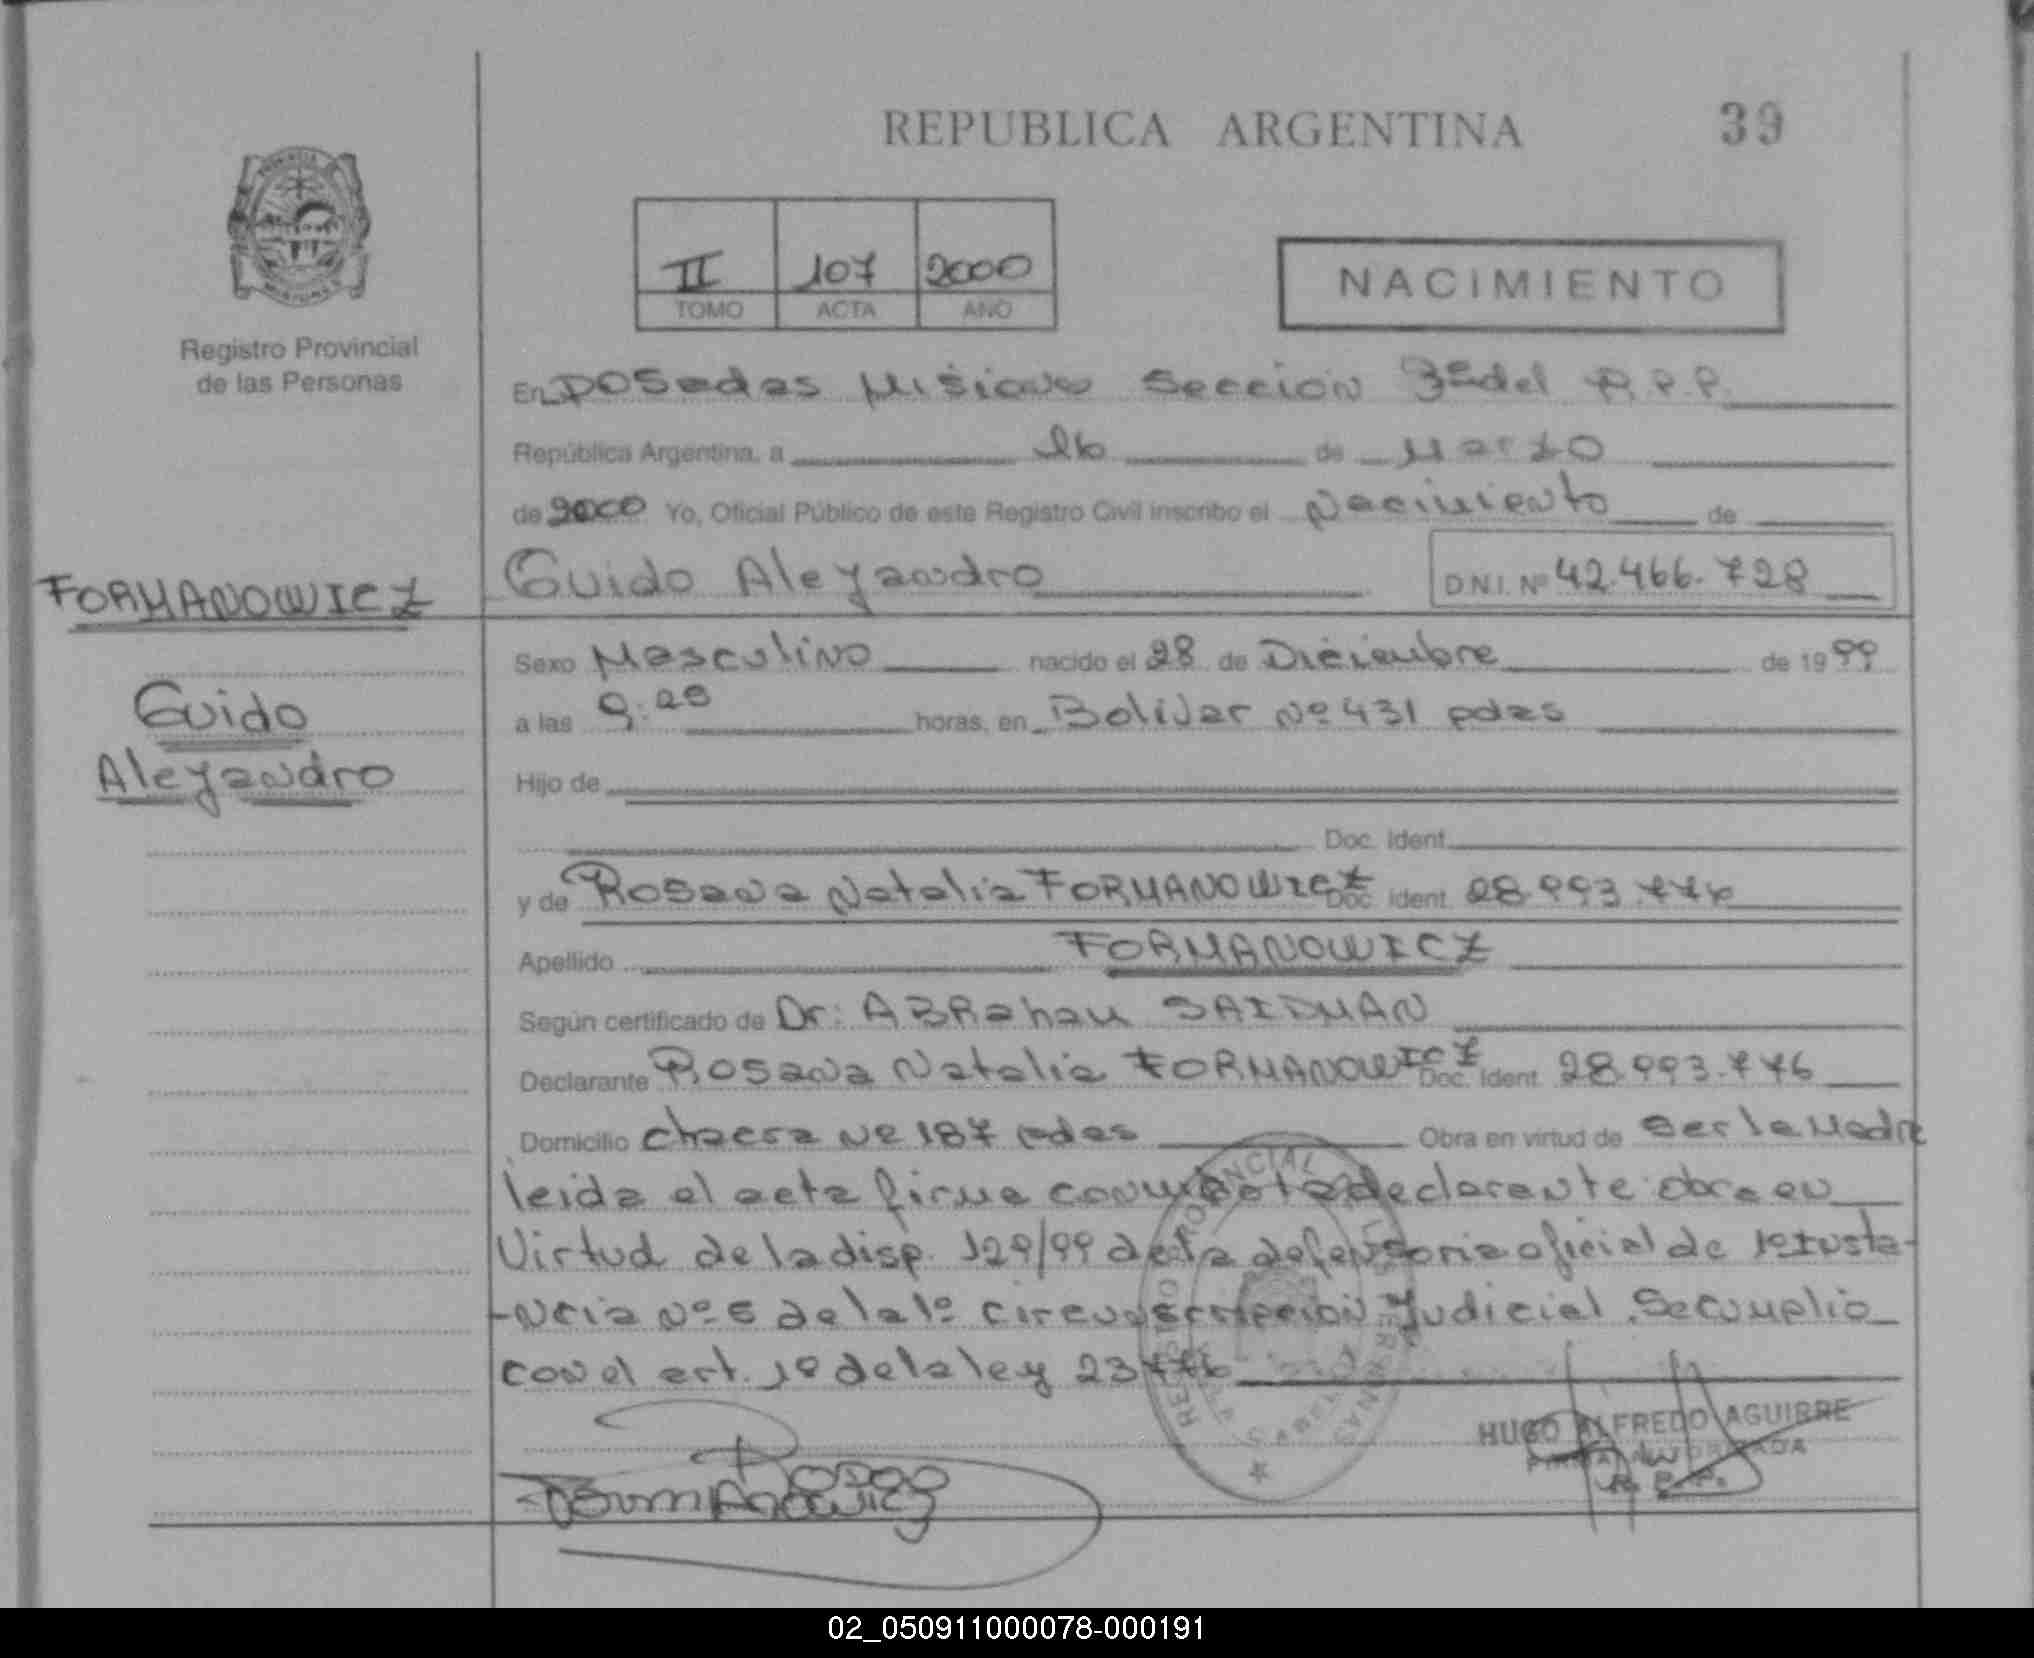 REPUBLICA ARGENTINA
39
II 107 2000
TOMO ACTA AÑO
NACIMIENTO
Registro Provincial
de las Personas
En Posadas Misiones Sección 3ª del R.P.P.
República Argentina, a 16 de Marzo
de 2000 Yo, Oficial Público de este Registro Civil inscribo el Nacimiento de
FORMANOWICZ
Guido Aleyandro
D.N.I. Nº 42.466.728
Sexo Masculino nacido el 28 de Diciembre de 1999
Guido
Aleyandro
a las 9:20 horas, en Bolivar Nº 431 pdas
Hijo de
Doc. Ident.
y de Rosana Natalia FORMANOWICZ Doc. Ident. 28.993.776
Apellido FORMANOWICZ
Según certificado de Dr: ABRaham SAIDMAN
Declarante Rosana Natalia FORMANOWICZ Doc. Ident 28.993.776
Domicilio chacra Nº 187 pdas Obra en virtud de ser la Madre
leida el acta firma conmigo la declarante obra en
Virtud de la disp. 129/99 de la defensoria oficial de 1º Insta-
-ncia Nº 5 de la 1º circunscripcion Judicial. Se cumplio
con el art. 1º de la ley 23776
REGISTRO PROVINCIAL DE LAS PERSONAS
HUGO ALFREDO AGUIRRE
FIRMA AUTORIZADA
R.P.P.
Formanowicz
02_050911000078-000191